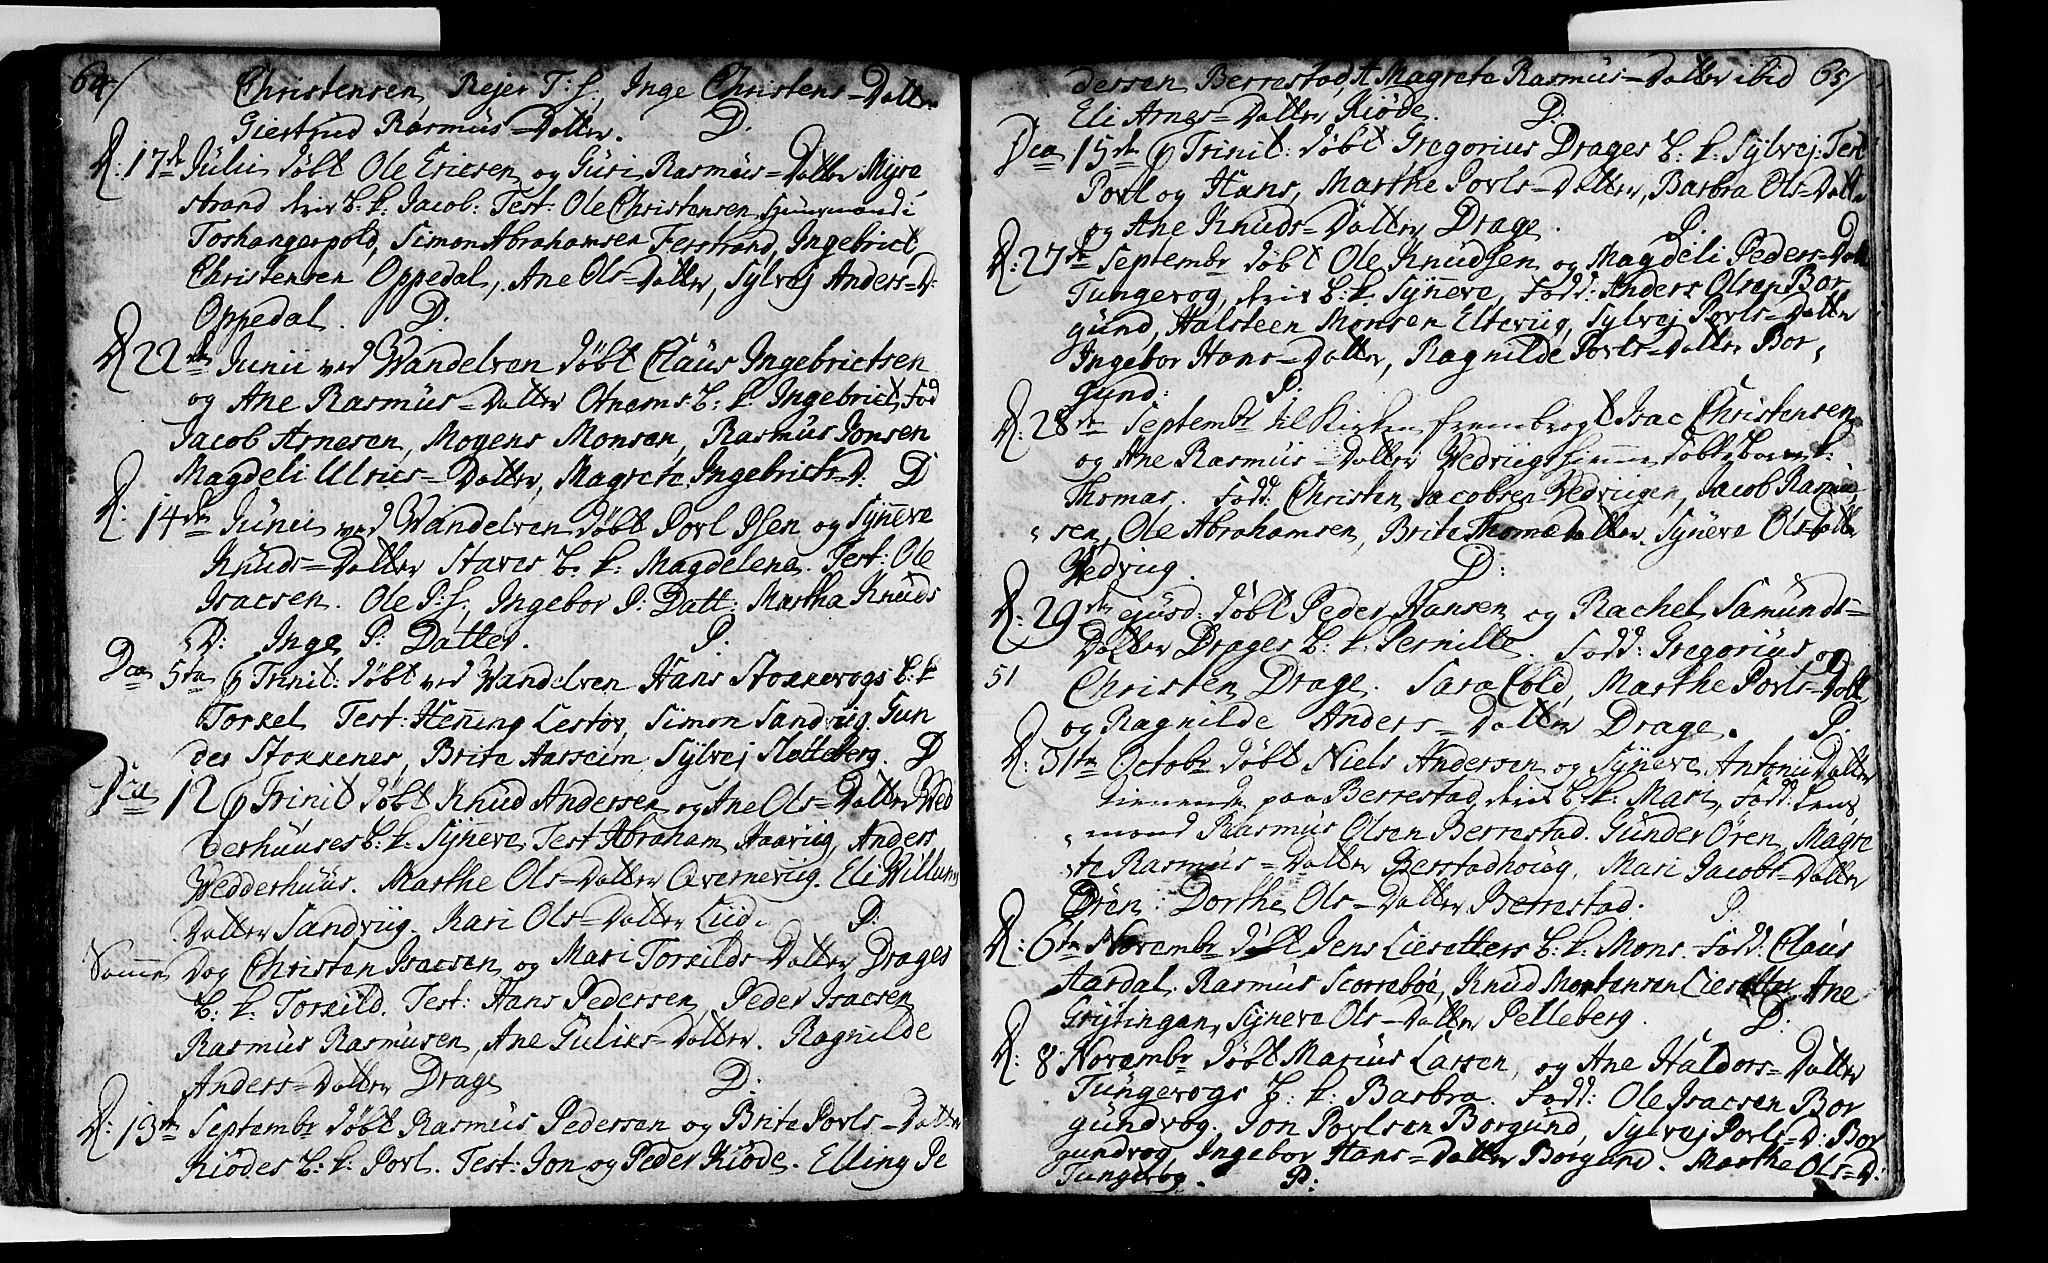 64/
Christensen, Rejer T: S., Inge Christens=Datter
Giertrud Rasmus=Datter. D.
D: 17de Julii døbt Ole Ericsen og Guri Rasmus=Datter Myre
strand deris B: k: Jacob: Test: Ole Christensen
Simon Abrahamsen Ferstrand, Ingebrict
Christensen Oppedal, Ane Ols=Datter, Sylvej Anders=D:
Oppedal. D:
D 22de Junii ved Wandelven døbt Claus Ingebrictsen
og Ane Rasmus=Datter Otnems B: k: Ingebrict, Fod
Jacob Arnesen, Mogens Monsen, Rasmus Jonsen
Magdeli Ulrics=Datter, Magrete Ingebricts=D: D
D: 14de Junii ved Wandelven døbt Povl Ipsen og Syneve
Knuds=Datter Stares B: k: Magdelene. Test: Ole
Isacsen. Ole P: S., Ingebor P: Datt: Martha Knuds
D: Inge P: Datter. P.
Dca 5ta p Trinit: døbt ved Wandelven Hans Stokkevogs B: k
Torkel Test: Hening Lestøv, Simon Sandviig. Gun
der Stokkenes, Brite Aarseim, Sylvej Slotteberg. D
Dca 12 p Trinit døbt Knud Andersen og Ane Ols=Datter Wed
derhuuses B: k: Syneve. Test Abraham Haaviig, Anders
Wedderhuus. Marthe Ols=Datter Overneviig. Eli Willums
Datter Sandviig. Kari Ols=Datter Liid. P:
Samme Dag Christen Isacsen og Mari Torkilds=Datter Drages
B: k: Torkild. Test: Hans Pedersen, Peder Isacsen
Rasmus Rasmusen, Ane Guliks=Datter. Ragnilde
Anders=Datter Drage D:
D: 13de Septembr døbt Rasmus Pedersen og Brite Povls=Datter
Kiødes B: k: Povl. Test: Jon og Peder Kiøde. Elling Pe
dersen Berrestad, Magrete Rasmus=Datter ibid 65/
Eli Arnes=Datter Kiøde. P:
Dca 15de p Trinit: døbt Gregorius Drages B: k: Sylvej: Test
Povl og Hans, Marthe Povls=Datter, Barbra Ols=Datter
og Ane Knuds=Datter Drage. P.
D: 27de Septembr døbt Ole Knudsen og Magdeli Peders=Datt
Tungevog, deris B: k: Syneve, Fadd: Anders Olsen Bor
gund, Halsteen Monsen Elteviig, Sylvej Povls=Datter
Ingebor Hans=Datter, Ragnilde Povls=Datter Bor
gund: P:
D: 28de Septembr til Kirken frembragt Isac Christensen
og Ane Rasmus=Datter Vedviigs hiemme døbte Barn k:
Thomas. Fadd: Christen Jacobsen Vedviigen, Jacob Rasmu
sen, Ole Abrahamsen, Brite Thomæ Datter. Syneve Ols=Datter
Vedviig. D:
D: 29de ejusd: døbt Peder Hansen og Rachel Samunds=
Datter Drages B: k: Pernille. Fadd: Gregorius og
51 Christen Drage. Sara Cold, Marthe Povls=Datt
og Ragnilde Anders=Datter Drage. P.
D: 31te Octobr døbt Niels Andersen og Syneve Antonii Datter
tienende paa Berrestad, deris B: k: Mari, Fadd: Lens
mand Rasmus Olsen Berrestad. Gunder Ören, Magre
te Rasmus=Datter Berstadhoug, Mari Jacobs=Datter
Ören. Dorthe Ols=Datter Berrestad. P.
D: 6te Novembr døbt Jens Liesetters B: k: Mons. Fadd: Claus
Aardal. Rasmus Scorrebøe, Knud Mortensen Liesetter Ane
Grytingen, Syneve Ols=Datter Pelleberg. D:
D: 8 Novembr døbt Marius Larsen, og Ane Haldors=Datter
Tungevogs B: k: Barbra. Fadd: Ole Isacsen Bor
gundvog. Jon Povlsen Borgund, Sylvej Povls=D: Bor
gundvog, Ingebor Hans=Datter Borgund. Marthe Ols=D:
Tungevog. P: